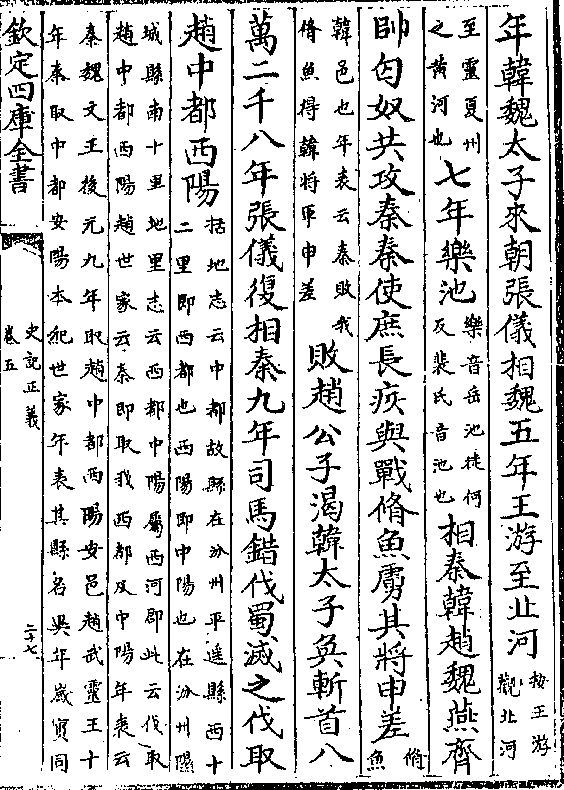 年韓魏太子來朝張儀相魏五年王游至北河按王游觀北河
至靈夏州之黄河也七年樂池樂音岳池徒何反裴氏音池也相秦韓趙魏燕齊
帥匈奴共攻秦秦使庶長疾與戰脩魚虜其將申差脩魚
韓邑也年表云秦敗我脩魚得韓將軍申差敗趙公子渴韓太子奐斬首八
萬二千八年張儀復相秦九年司馬錯伐蜀滅之伐取
趙中都西陽括地志云中都故縣在汾州平遥縣西十二里即西都也西陽即中陽也在汾州隰
城縣南十里地里志云西都中陽屬西河郡此云伐取
趙中都西陽趙世家云秦即取我西都及中陽年表云
秦魏文王後元九年取趙中都西陽安邑趙武靈王十
年秦取中都安陽本紀世家年表其縣名異年歲實同
欽定四庫全書
史記正義
卷五
二十七